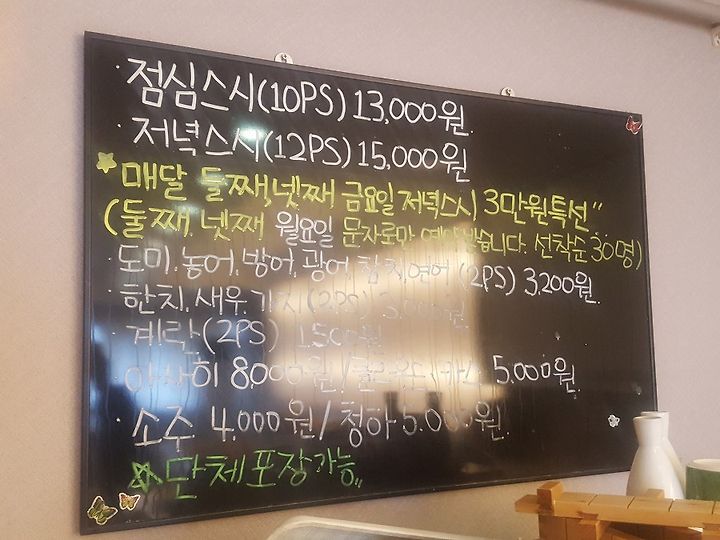 · 점심스시(10PS) 13,000원
· 저녁스시(12PS) 15,000원
"매달 둘째, 넷째 금요일 저녁스시 3만원특선"
(둘째, 넷째 월요일 문자로만 선착순 30명)
· 도미. 농어. 방어. 광어. 참치. 연어 (2PS) 3,200원.
· 한치. 새우. 가지(2PS)
· 계란(2PS) 1,500원
· 아사히 8,000원 / 5,000원.
· 소주 4,000원 / 청하 5,000원.
☆단체포장가능.